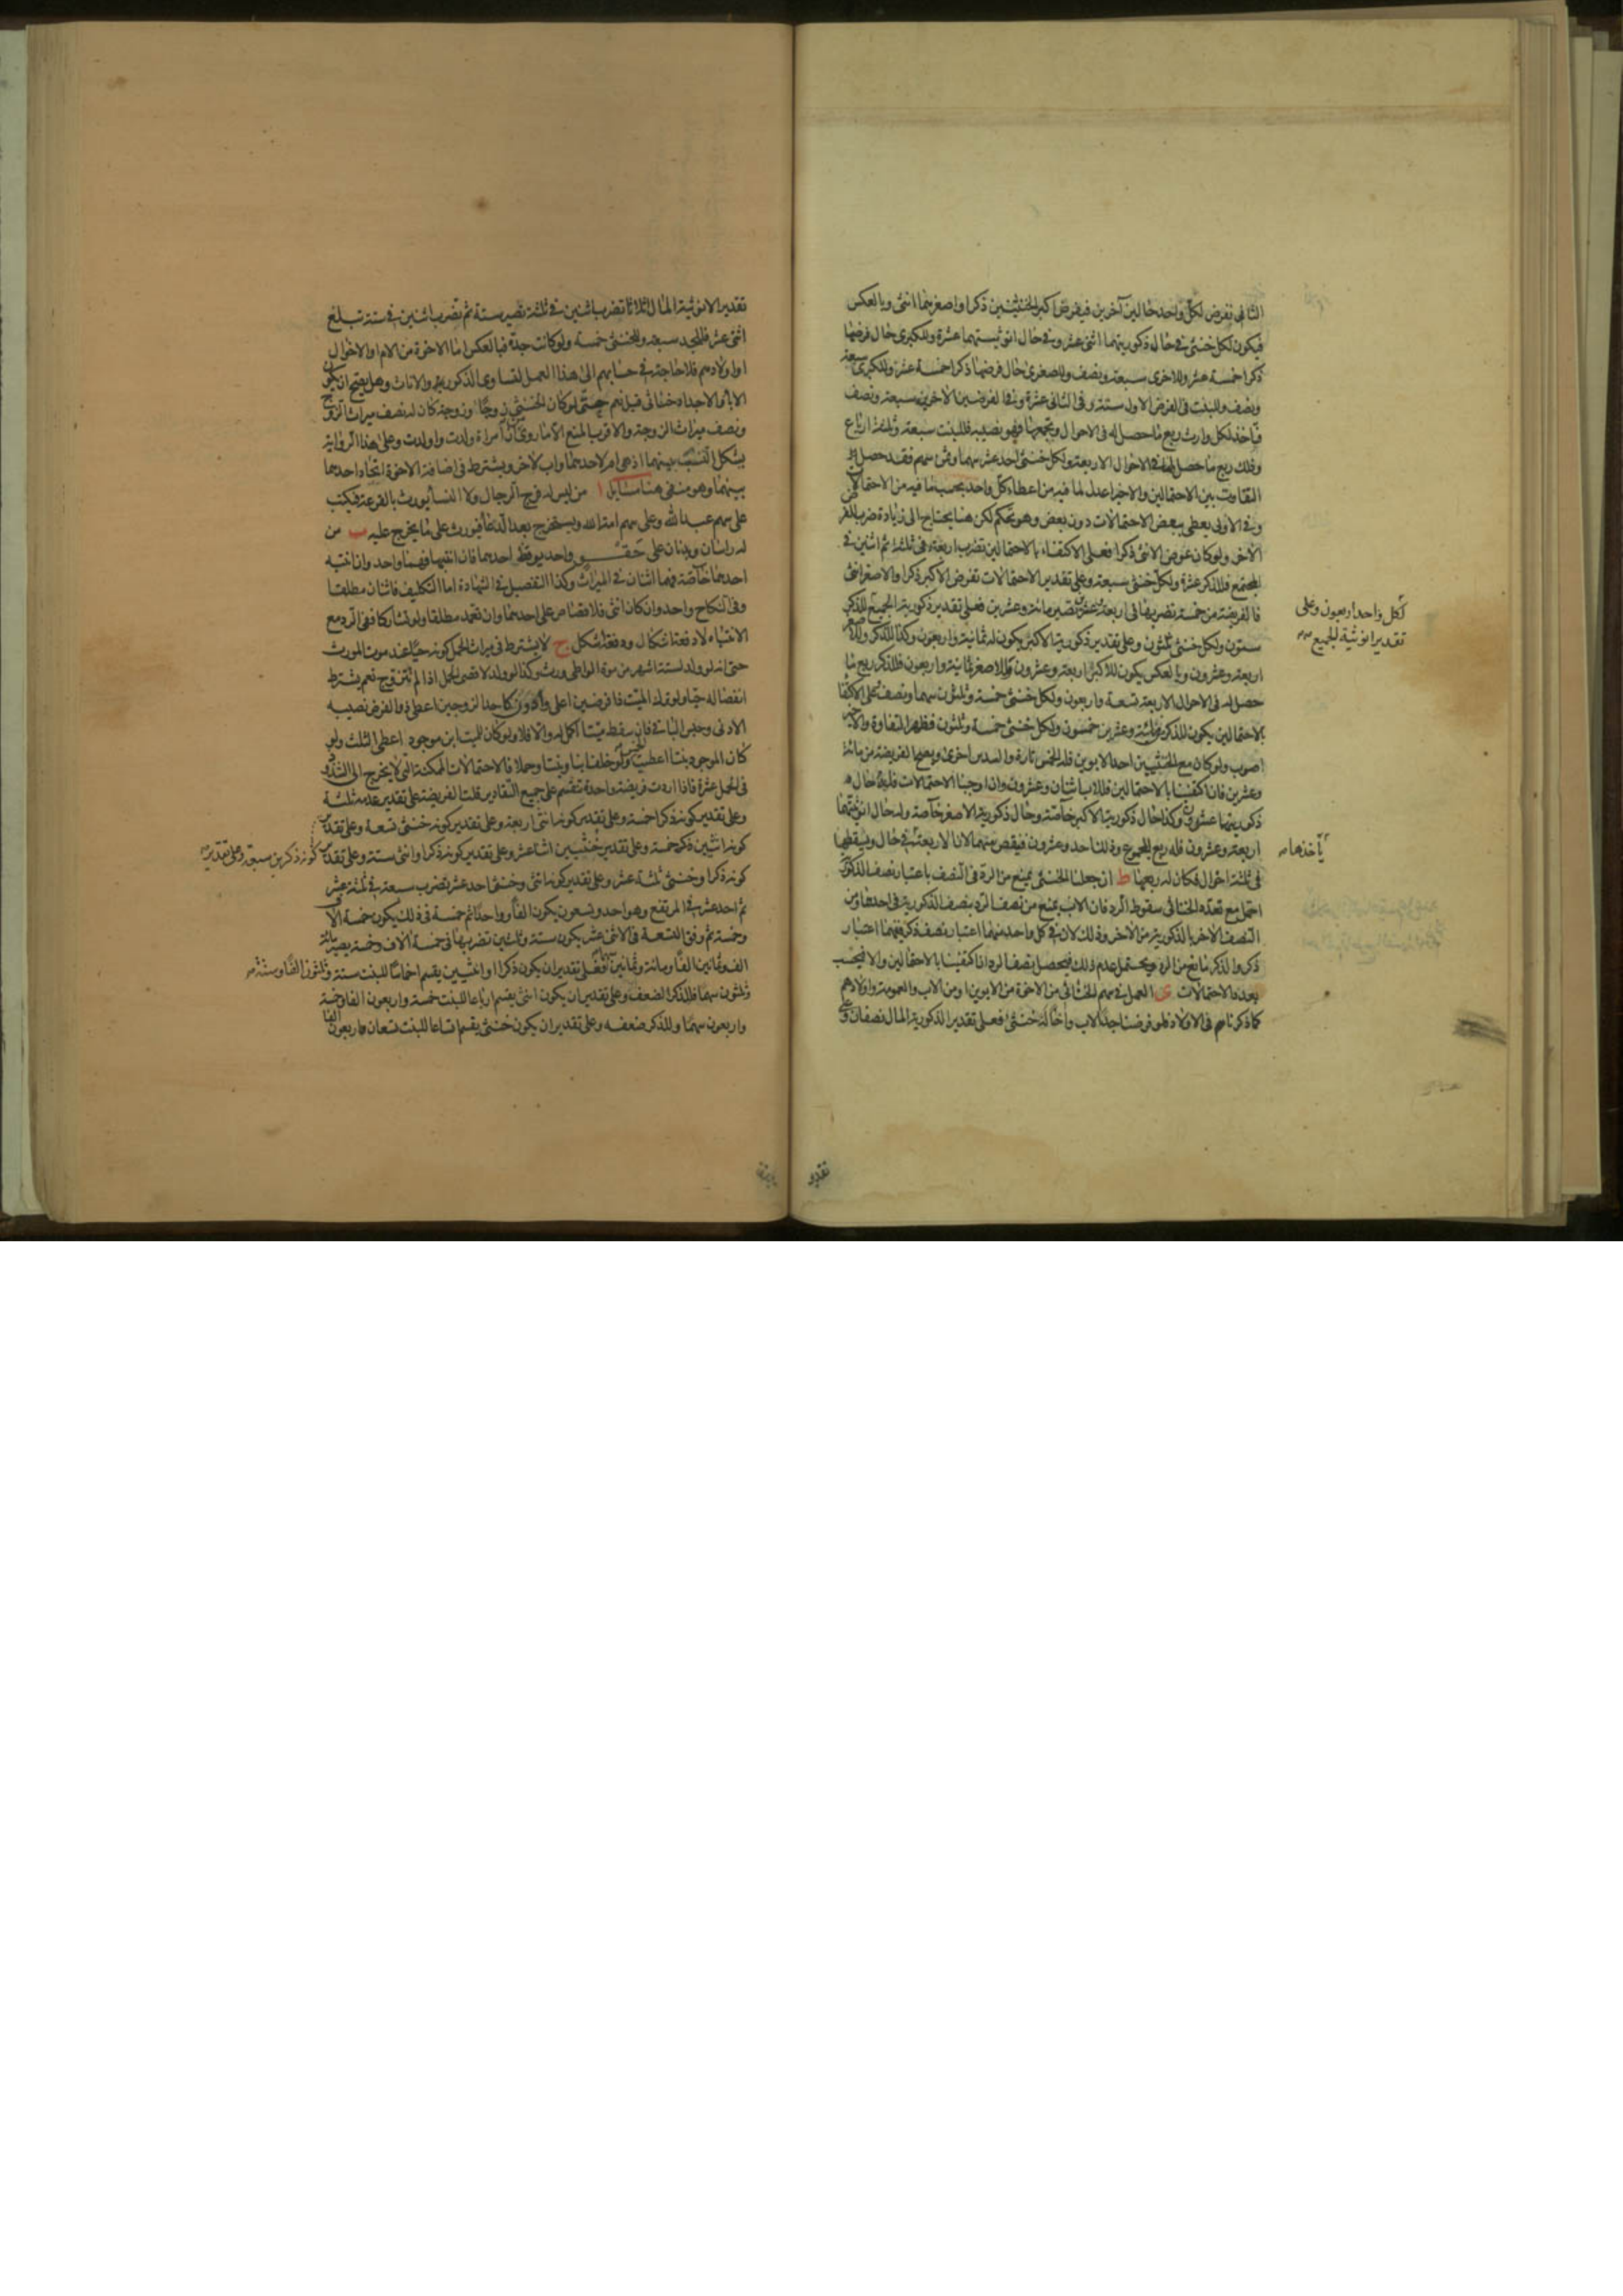 الثانى نفرض لكل واحد حالين آخرين فيفرض اكبر الخنثيين ذكرا واصغرهما انثى وبالعكس
فيكون لكل خنثى فى حال ذكوريتهما اثنى عشر وفى حال انوثيتهما عشرة وللكبرى حال فرضها
ذكرا خمسة عشر وللاخرى سبعة ونصف وللصغرى حال فرضها ذكرا خمسة عشر وللكبرى سبعة
ونصف وللبنت فى الفرض الاول ستة وفى الثانى عشرة وفى الفرضين الاخرين سبعة ونصف
فتأخذ لكل وارث ربع ما حصل له فى الاحوال وتجمعها فهو نصيبه فللبنت سبعة وثلثة ارباع
وذلك ربع ما حصل لها فى الاحوال الاربعة ولكل خنثى احد عشر سهما وثمن سهم فقد حصل
التفاوت بين الاحتمالين والاخير اعدل لما فيه من اعطاء كل واحد بحسب ما فيه من الاحتمال
وفى الاول يعطى ببعض الاحتمالات دون بعض وهو تحكم لكن هنا يحتاج الى زيادة ضرب للفرض
الآخر ولو كان عوض الانثى ذكرا فعلى الاكتفاء بالاحتمالين تضرب اربعة فى ثلثة ثم اثنين فى
المجتمع فللذكر عشرة ولكل خنثى سبعة وعلى تقدير الاحتمالات تفرض الاكبر ذكرا والاصغر انثى
فالفريضة من خمسة تضربها فى اربعة وعشرين تصير مائة وعشرين فعلى تقدير ذكورية الجميع للذكر
لكل واحد اربعون وعلى
تقدير انوثية الجميع
ستون ولكل خنثى ثلثون وعلى تقدير ذكورية الاكبر يكون له ثمانية واربعون وكذا للذكر وللاصغر
اربعة وعشرون وبالعكس يكون للاكبر اربعة وعشرون وللاصغر ثمانية واربعون فللذكر ربع ما
حصل له فى الاحوال الاربعة تسعة واربعون ولكل خنثى خمسة وثلثون سهما ونصف وعلى الاكتفا
بالاحتمالين يكون للذكر من مائة وعشرين خمسون ولكل خنثى خمسة وثلثون فظهر التفاوة والاخير
اصوب ولو كان مع الخنثيين احد الابوين فله الخمس تارة والسدس اخرى ويصح الفريضة من مائة
وعشرين فان اكتفينا بالاحتمالين فللاب اثنان وعشرون وان اوجبنا الاحتمالات فله فى حال
ذكوريتهما عشرون وكذا حال ذكورية الاكبر خاصة وحال ذكورية الاصغر خاصة وله حال انوثيتهما
اربعة وعشرون فله ربع المجموع وذلك احد وعشرون فينقص منهما لان الاربعة فى حال ويسقطها
يأخذها
فى ثلثة احوال فكان له ربعها ط ان جعلنا الخنثى يمنع من الرد فى النصف باعتبار نصف الذكورية
احتمل مع تعدد الخناثى سقوط الرد فان الاب يمنع من نصف الرد بنصف الذكورية فى احدهما ومن
النصف الآخر بالذكورية من الآخر وذلك لان فى كل واحد منهما اعتبار نصف ذكر ففيهما اعتبار
ذكر والذكر مانع من الرد ويحتمل عدم ذلك فيحصل نصف الرد ان اكتفينا بالاحتمالين والا فبحسب
بعدد الاحتمالات ى العمل فى سهم الخناثى من الاخوة من الابوين او من الاب والعمومة واولادهم
كما ذكرناه فى الاولاد فلو فرضنا جدا لاب واخا له خنثى فعلى تقدير الذكورية المال نصفان وعلى
تقدير
تقدير الانوثية المال اثلاثا تضرب اثنين فى ثلثة تصير ستة ثم تضرب اثنين فى ستة تبلغ
اثنى عشر فللجد سبعة وللخنثى خمسة ولو كانت جدة فبالعكس اما الاخوة من الام او الاخوال
او اولادهم فلا حاجة فى حسابهم الى هذا العمل لتساوى الذكورية والاناث وهل يصح ان يكون
الاباء والاجداد خناثى قيل نعم حتى لو كان الخنثى زوجا او زوجة كان له نصف ميراث الزوج
ونصف ميراث الزوجة والاقرب المنع الا ما روى ان امراة ولدت واولدت وعلى هذا الرواية
يشكل النسب بينهما اذ هى ام لاحدهما واب لآخر ويشترط فى اضافة الاخوة اتحاد احدهما
بينهما وهو منفى هنا مسايل ا من ليس له فرج الرجال ولا النسا يورث بالقرعة فيكتب
على سهم عبدالله وعلى سهم امة الله ويستخرج بعد الدعا فيورث على ما يخرج عليه ب من
له راسان وبدنان على حقو واحد يوقظ احدهما فان انتبها فهما واحد وان انتبه
احدهما خاصة فهما اثنان فى الميراث وكذا التفصيل فى الشهادة اما التكليف فاثنان مطلقا
وفى النكاح واحد وان كان انثى فلا قصاص على احدهما وان تعمد مطلقا ولو تشاركا ففى الرد مع
الانتباه لا دفعة اشكال ودفعة اشكل ج لا يشترط فى ميراث الحمل كونه حيا عند موت المورث
حتى انه لو ولد لستة اشهر من موت الواطى ورث وكذا لو ولد لاقصى الحمل اذا لم تتزوج نعم يشترط
انفصاله حيا ولو ترك الميت ذا فرضين اعلى وادون كاحد الزوجين اعطى ذو الفرض نصيبه
الادنى وحبس الباقى فان سقط ميتا اكمل له والا فلا ولو كان للميت ابن موجود اعطى الثلث ولو
كان الموجود بنتا اعطيت الخمس ولو خلف ابنا وبنتا وحملا فالاحتمالات الممكنة التى لا يخرج الى الشذوذ
فى الحمل عشرة فاذا اردت فريضة واحدة تنقسم على جميع التقادير قلت الفريضة على تقدير عدمه ثلثة
وعلى تقدير كونه ذكرا خمسة وعلى تقدير كونه انثى اربعة وعلى تقدير كونه خنثى تسعة وعلى تقدير
كونه ذكرين سبعة وعلى تقدير
كونه انثيين خمسة وعلى تقدير خنثيين اثنا عشر وعلى تقدير كونه ذكرا وانثى ستة وعلى تقدير
كونه ذكرا وخنثى ثلثة عشر وعلى تقدير كونه انثى وخنثى احد عشر تضرب سبعة فى ثلثة عشر
ثم احد عشر فى المرتفع وهو احد وتسعون يكون الفا وواحدا ثم خمسة فى ذلك يكون خمسة الاف
وخمسة ثم وفق التسعة فى الاثنى عشر يكون ستة وثلثين تضربها فى خمسة الاف وخمسة يصير مائة
الف وثمانين الفا ومائة وثمانين فعلى تقدير ان يكون ذكرا او انثيين يقسم اخماسا للبنت ستة وثلثون الفا وستة
وثلثون سهما فللذكر الضعف وعلى تقدير ان يكون انثى يقسم ارباعا للبنت خمسة واربعون الفا وخمسة
واربعون سهما وللذكر ضعفه وعلى تقدير ان يكون خنثى يقسم اتساعا للبنت تسعان اربعون الفا